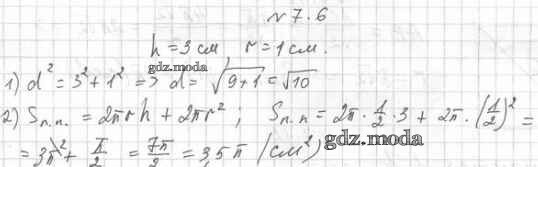 № 7.6
h = 3 см, r = 1 см.
gdz.moda
1) d² = 3² + 1² => d = √(9+1) = √10
2) Sп.п. = 2πrh + 2πr² ; Sп.п = 2π · 1/2 · 3 + 2π · (1/2)² =
= 3π + π/2 = 7π/2 = 3,5 π (см²)
gdz.moda